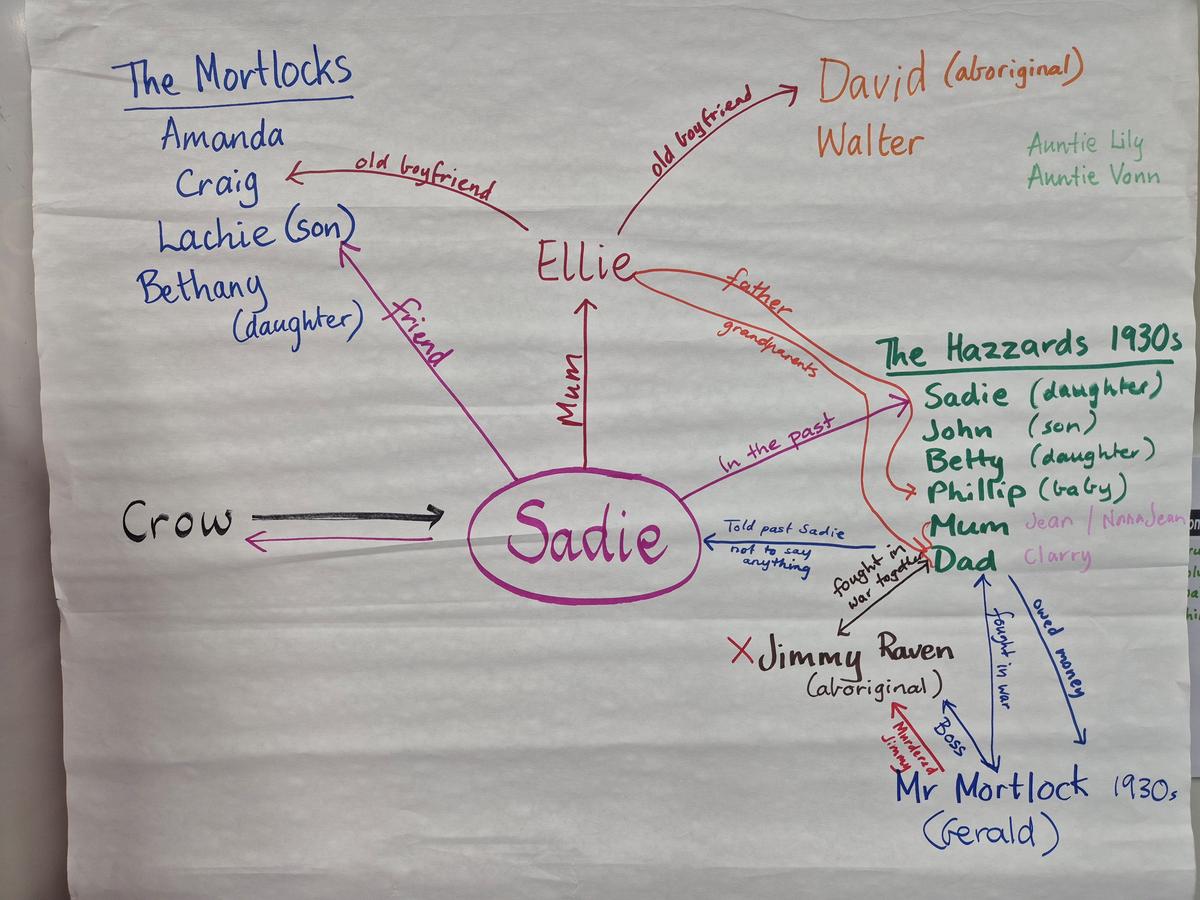 The Mortlocks
Amanda
Craig
Lachie (son)
Bethany
(daughter)
old boyfriend
old boyfriend
David (aboriginal)
Walter
Auntie Lily
Auntie Vonn
Ellie
father
grandparents
friend
Mum
In the past
The Hazzards 1930s
Sadie (daughter)
John (son)
Betty (daughter)
Phillip (baby)
Mum Jean / Nanna Jean
Dad Clarry
Crow
Sadie
Told past Sadie
not to say
anything
fought in
war together
X Jimmy Raven
(aboriginal)
fought in war
owed money
Murdered
Jimmy
Boss
Mr Mortlock 1930s
(Gerald)